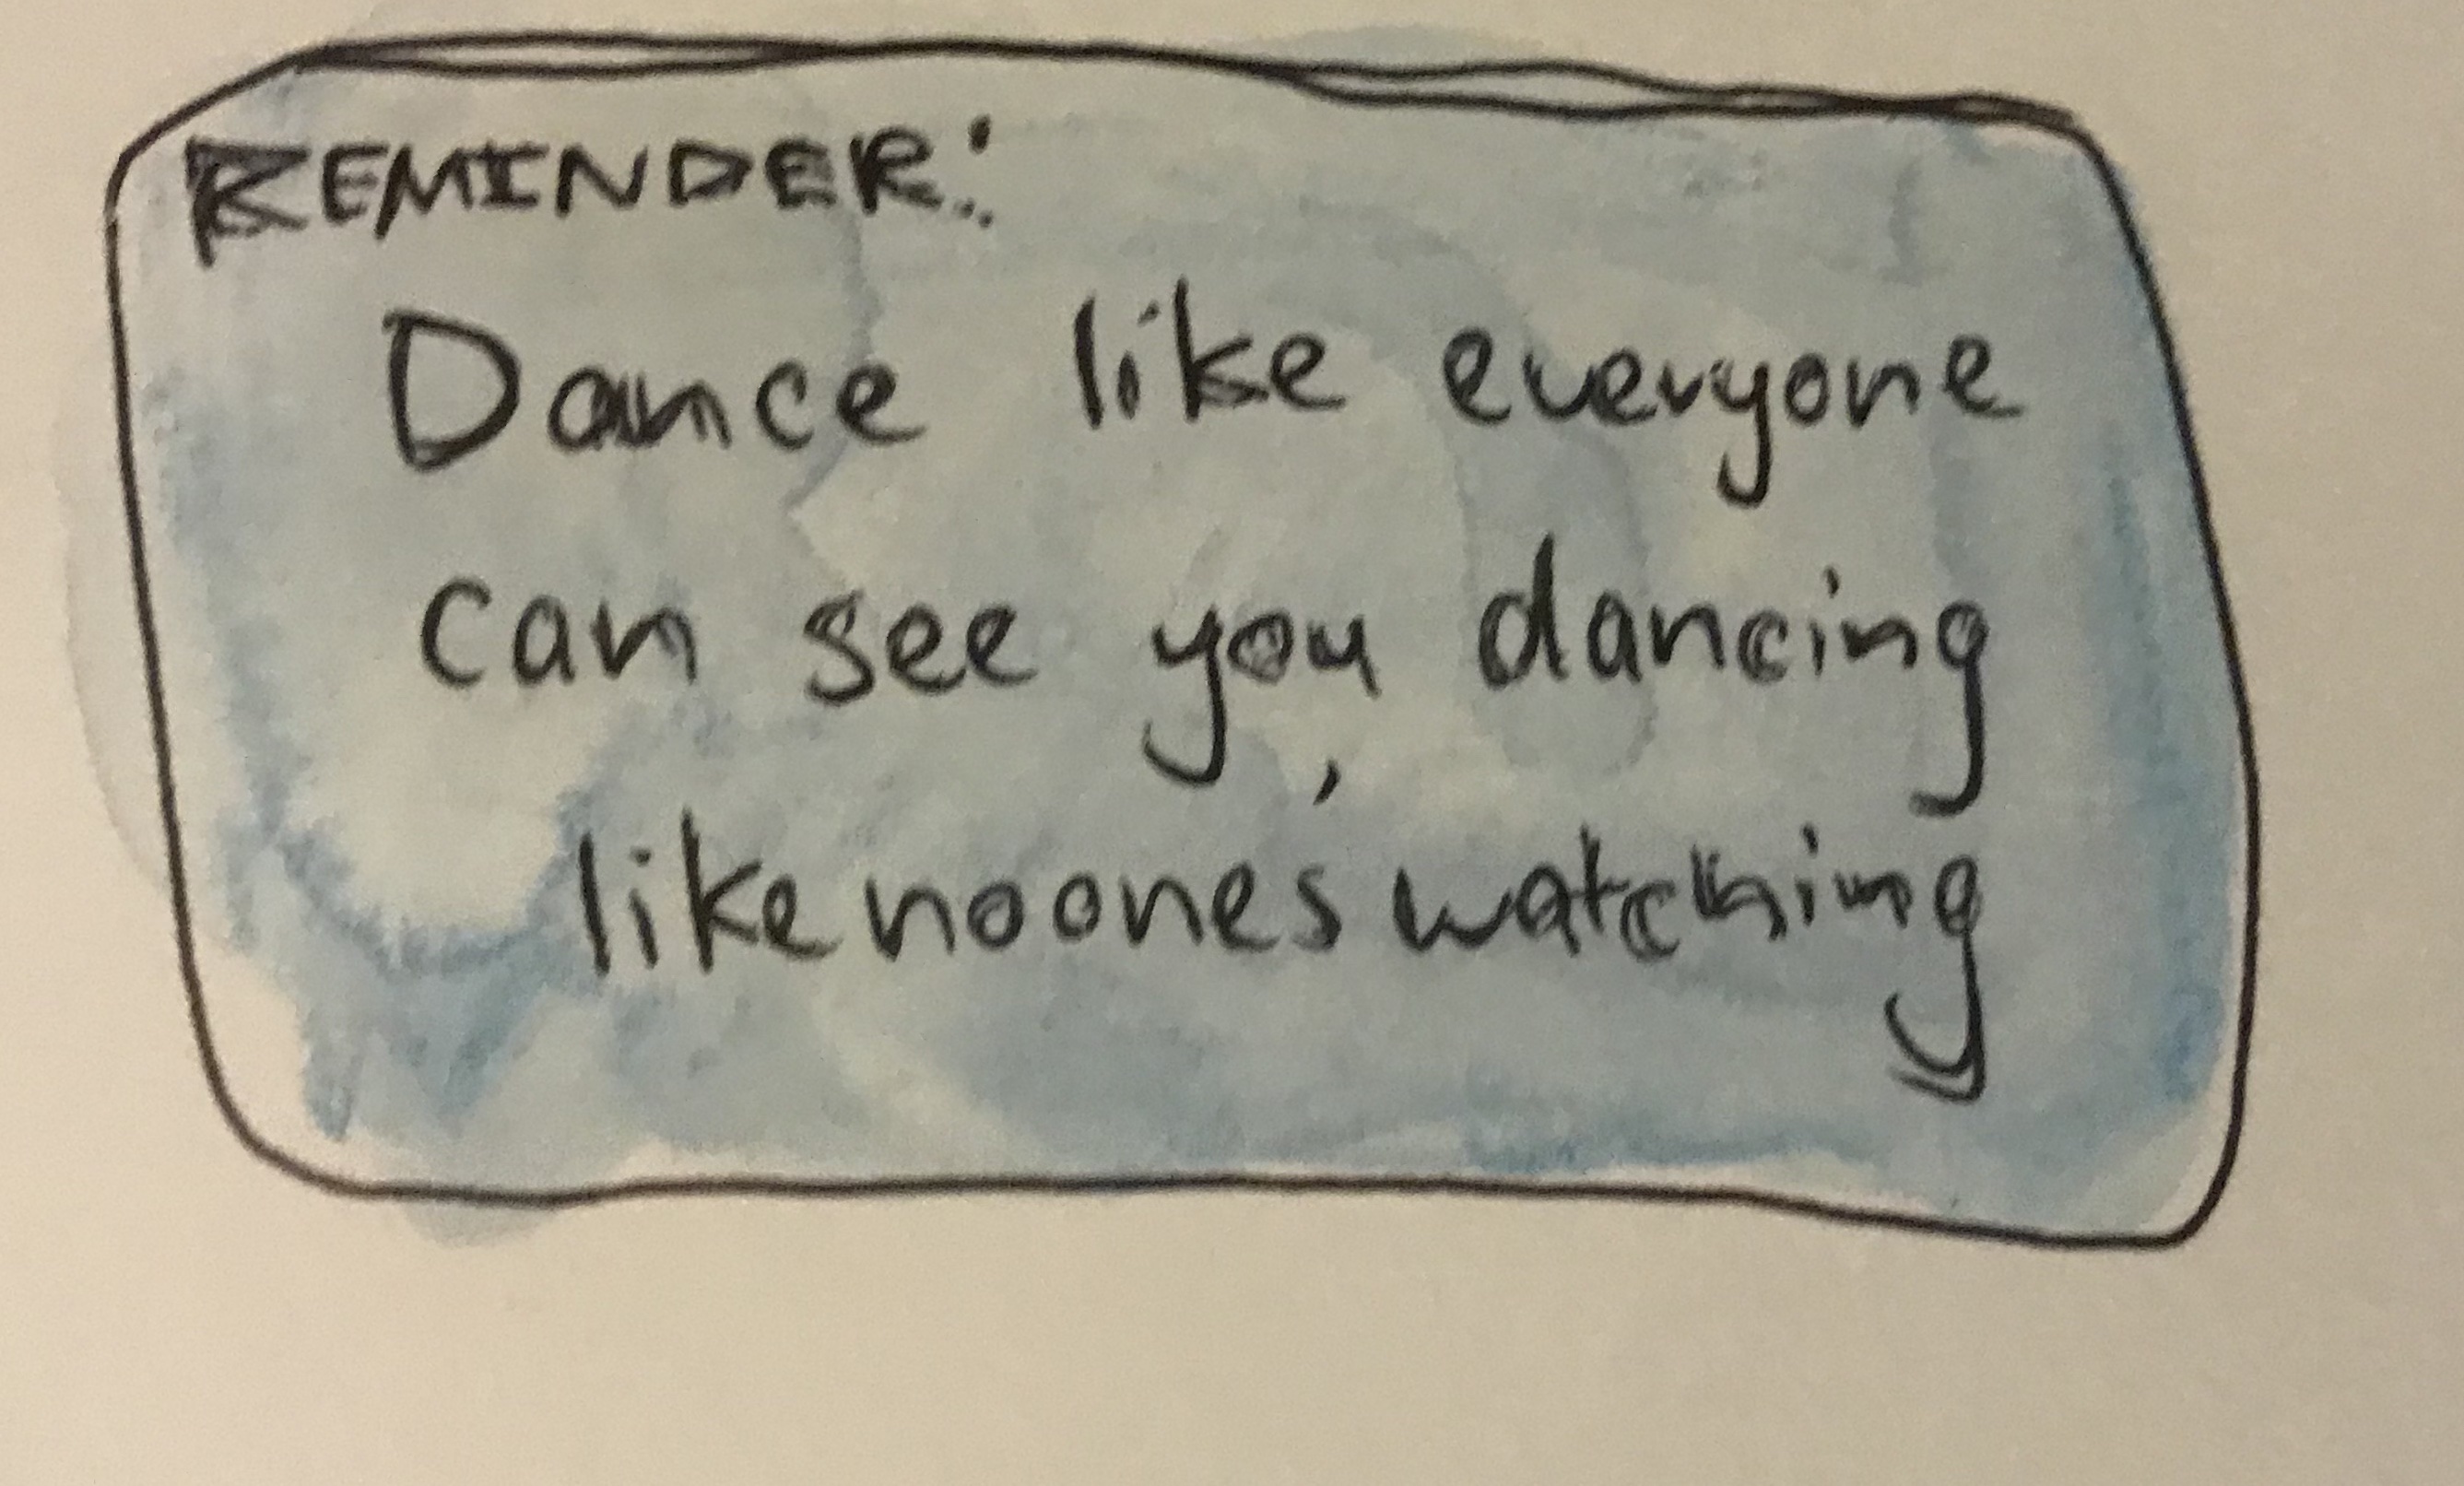 REMINDER:
Dance like everyone
can see you dancing
like noone's watching